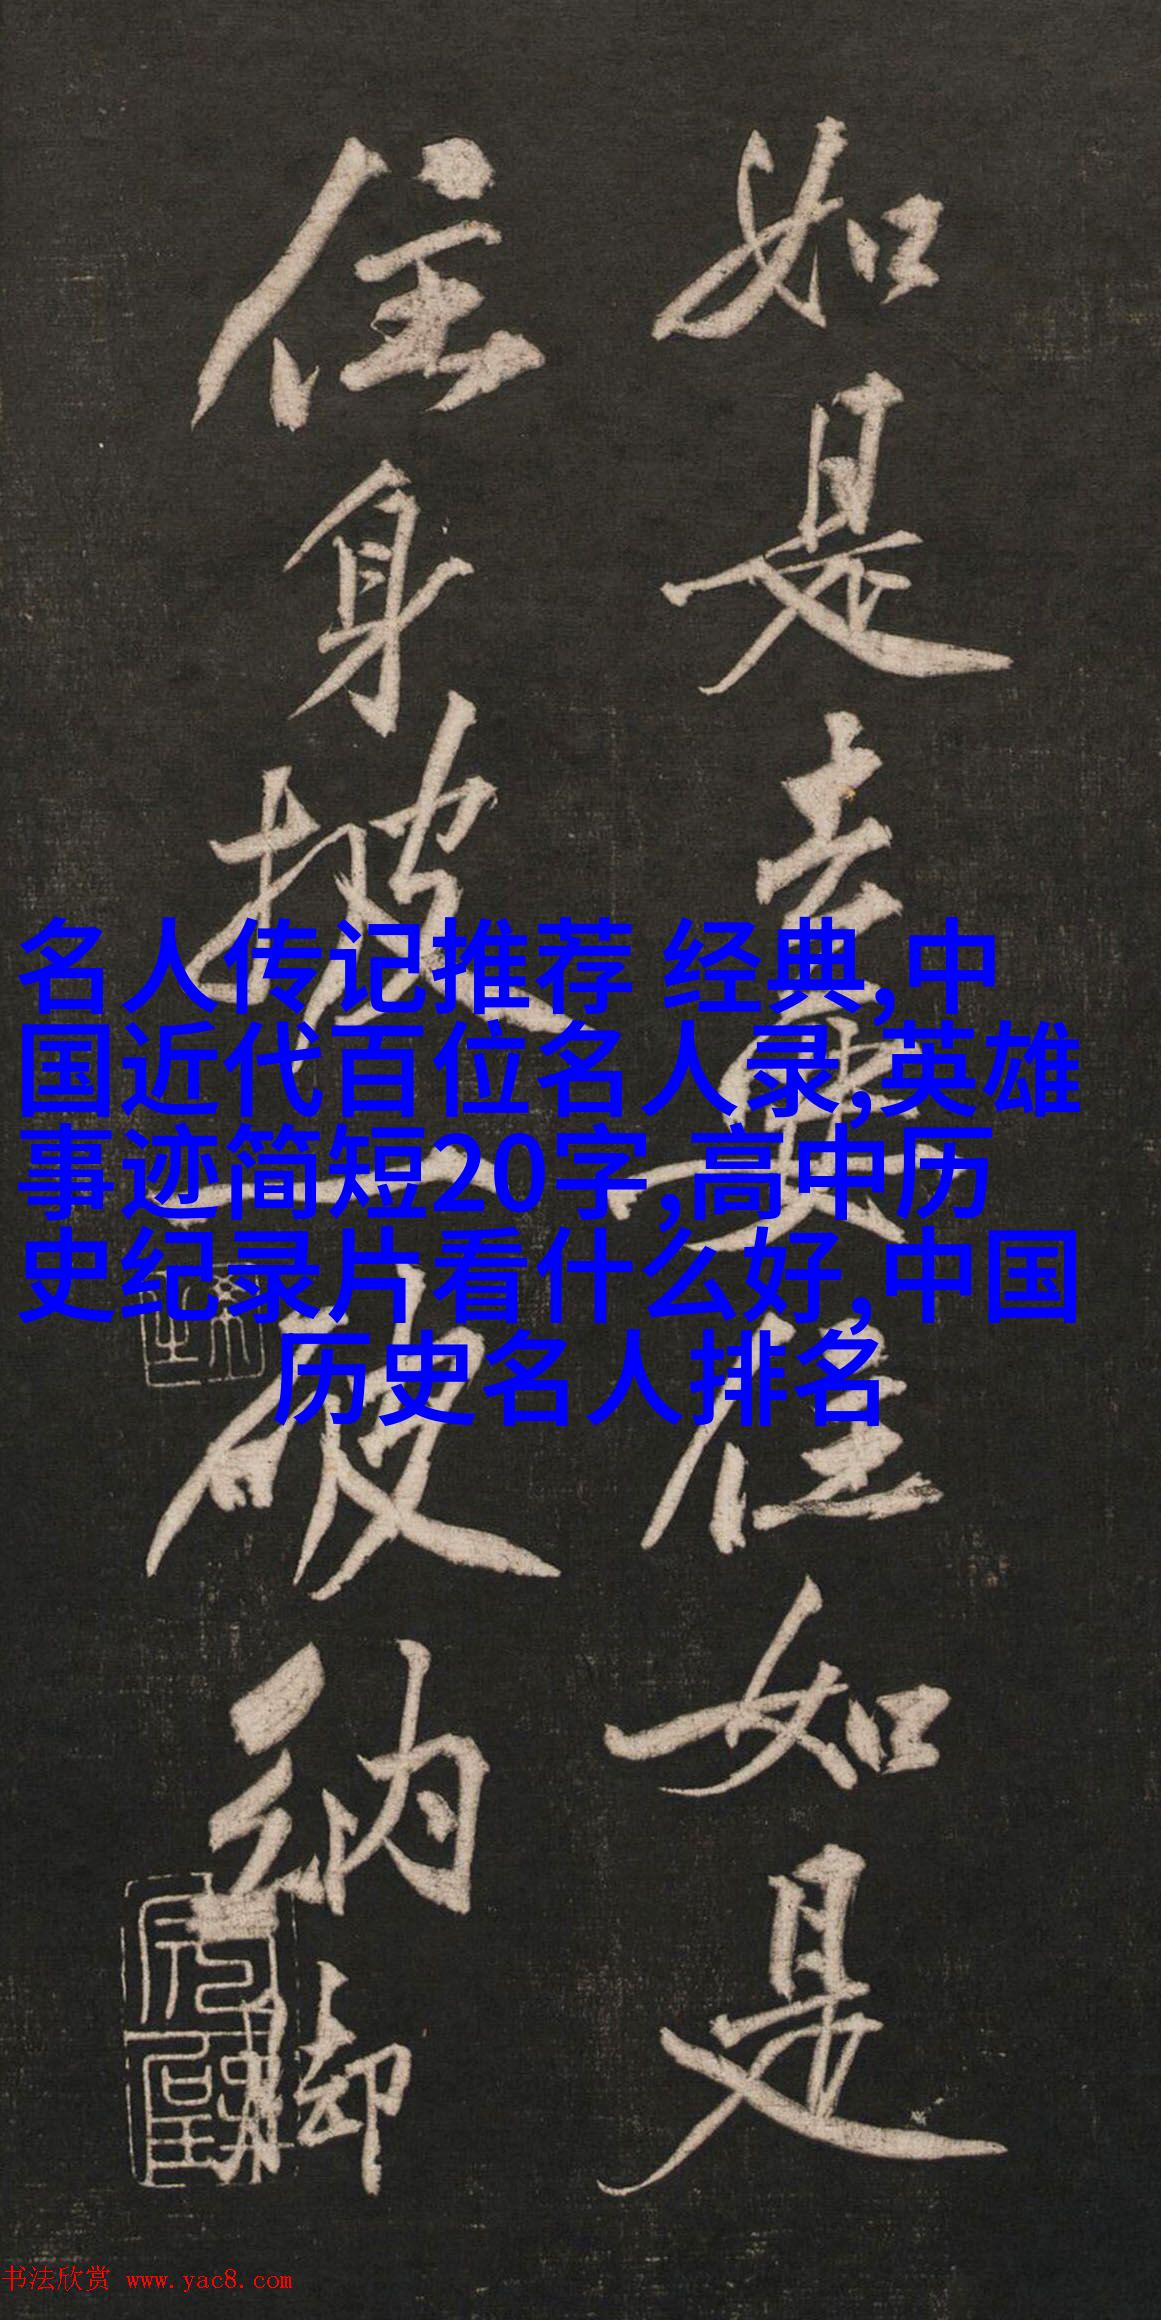 如是去来住如是
住身披一破衲脚
名人传记推荐 经典,中
国近代百位名人录,英雄
事迹简短20字,高中历
史纪录片看什么好,中国
历史名人排名
书法欣赏 www.yac8.com